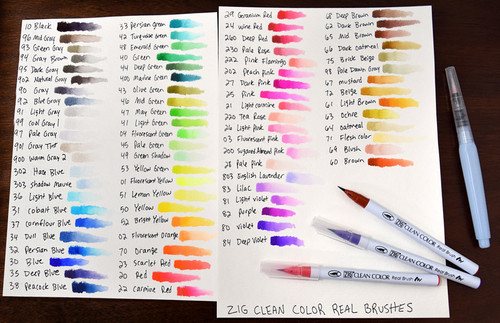 10 Black
96 Mid Gray
93 Green Gray
94 Gray Brown
95 Dark Gray
92 Natural Gray
90 Gray
92 Blue Gray
91 Light Gray
99 Cool Gray
97 Pale Gray
901 Gray Tint
900 Warm Gray 2
302 Haze Blue
303 Shadow Mauve
36 Light Blue
31 Cobalt Blue
37 Cornflour Blue
34 Dull Blue
32 Persian Blue
30 Blue
35 Deep Blue
38 Peacock Blue
33 Persian Green
42 Turquoise Green
48 Emerald Green
40 Green
44 Deep Green
400 Marine Green
43 Olive Green
46 Mid Green
47 May Green
41 Light Green
04 Fluorescent Green
45 Pale Green
49 Green Shadow
53 Yellow Green
01 Fluorescent Yellow
51 Lemon Yellow
50 Yellow
52 Bright Yellow
02 Fluorescent Orange
70 Orange
23 Scarlet Red
20 Red
22 Carmine Red
219 Geranium Red
24 Wine Red
260 Deep Red
230 Pale Rose
222 Pink Flamingo
202 Peach Pink
27 Dark Pink
25 Pink
21 Light Carmine
220 Tea Rose
26 Light Pink
03 Fluorescent Pink
200 Sugared Almond Pink
28 Pale Pink
803 English Lavender
83 Lilac
81 Light Violet
82 Purple
80 Violet
84 Deep Violet
68 Deep Brown
62 Dark Brown
65 Mid Brown
66 Dark Oatmeal
75 Brick Beige
98 Pale Dawn Gray
67 Mustard
72 Beige
61 Light Brown
63 Ochre
64 Oatmeal
71 Flesh Color
69 Blush
60 Brown
ZIG CLEAN COLOR Real Brush
ZIG CLEAN COLOR Real Brush
ZIG CLEAN COLOR Real Brush
ZIG CLEAN COLOR REAL BRUSHES